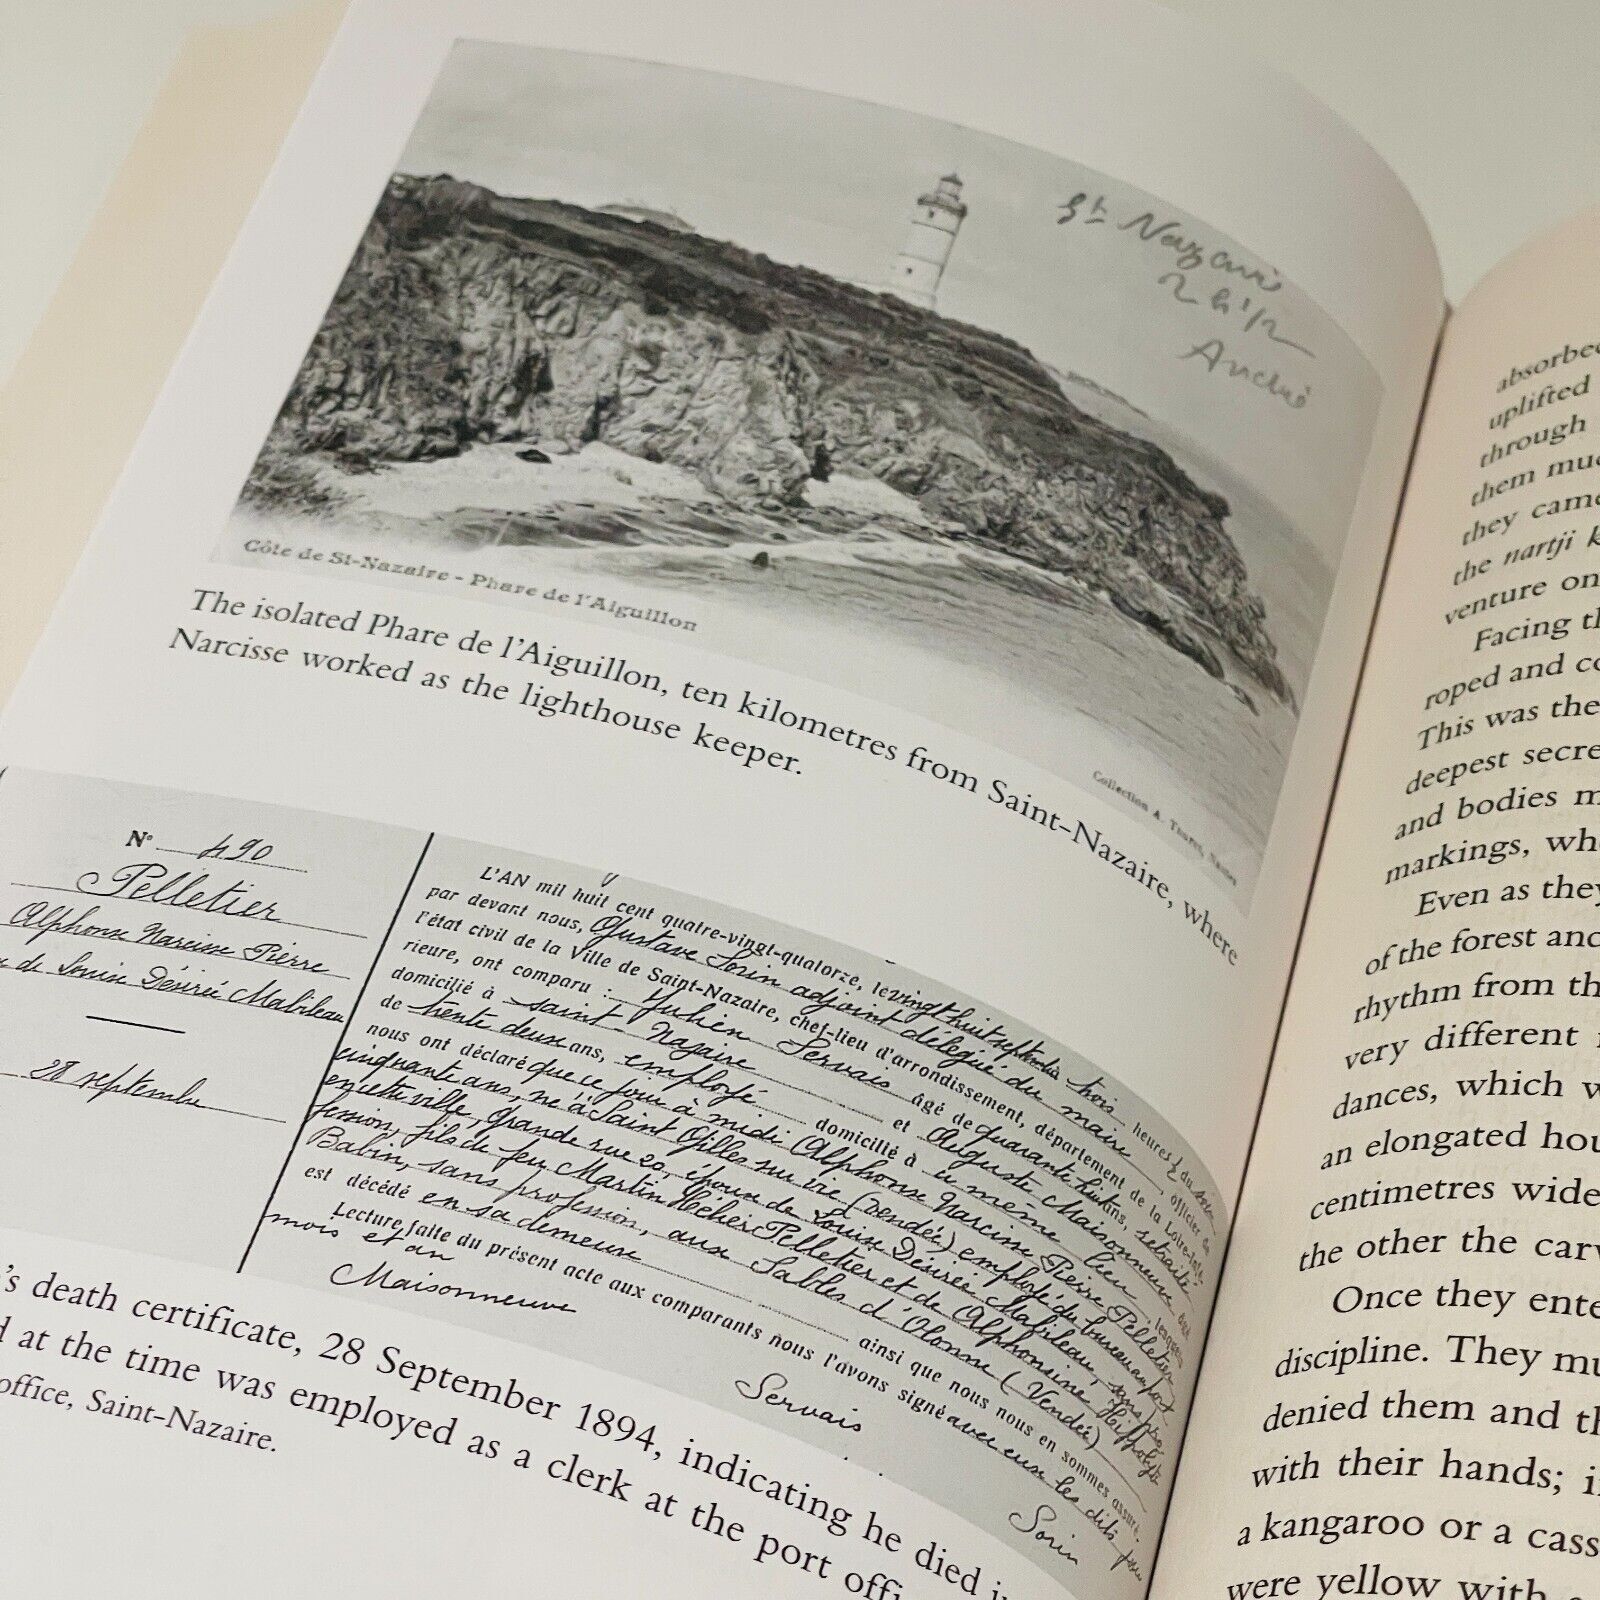 St Nazaire
Côte de St-Nazaire - Phare de l'Aiguillon
Collection A.
The isolated Phare de l'Aiguillon, ten kilometres from Saint-Nazaire, where
Narcisse worked as the lighthouse keeper.
N° 490
Pelletier
Alphonse Narcisse Pierre
de Louise Désirée Mabileau
28 septembre
L'AN mil huit cent quatre-vingt-quatorze, le vingt huit septembre trois heures ½ du soir
par devant nous, Gustave Sorin adjoint délégué du maire, officier de
l'état civil de la Ville de Saint-Nazaire, chef-lieu d'arrondissement, département de la Loire-Infé-
rieure, ont comparu : Julien Servais âgé de quarante huit ans, retraité
domicilié à Saint-Nazaire et Auguste Maisonneuve âgé
de trente deux ans, employé domicilié à même lieu, lesquels
nous ont déclaré que ce jour à midi Alphonse Narcisse Pierre Pelletier
cinquante ans, né à Saint Gilles sur vie (Vendée) employé du bureau au port
en cette ville, grande rue 20, époux de Louise Désirée Mabileau, sans pro-
fession, fils de feu Martin Pelletier et de Alphonsine Hippolyte
Babin, sans profession, aux Sables d'Olonne (Vendée)
est décédé en sa demeure ainsi que nous nous en sommes assuré.
Lecture faite du présent acte aux comparants nous l'avons signé avec eux les dits jour
mois et an
Maisonneuve
Servais
Sorin
's death certificate, 28 September 1894, indicating he died i
d at the time was employed as a clerk at the port offi
office, Saint-Nazaire.
absorbed
uplifted
through
them muc
they came
the nartji k
venture on
Facing th
roped and co
This was the
deepest secre
and bodies m
markings, whe
Even as they
of the forest and
rhythm from th
very different
dances, which w
an elongated hou
centimetres wide
the other the carv
Once they ente
discipline. They mu
denied them and th
with their hands; i
a kangaroo or a cass
were yellow with